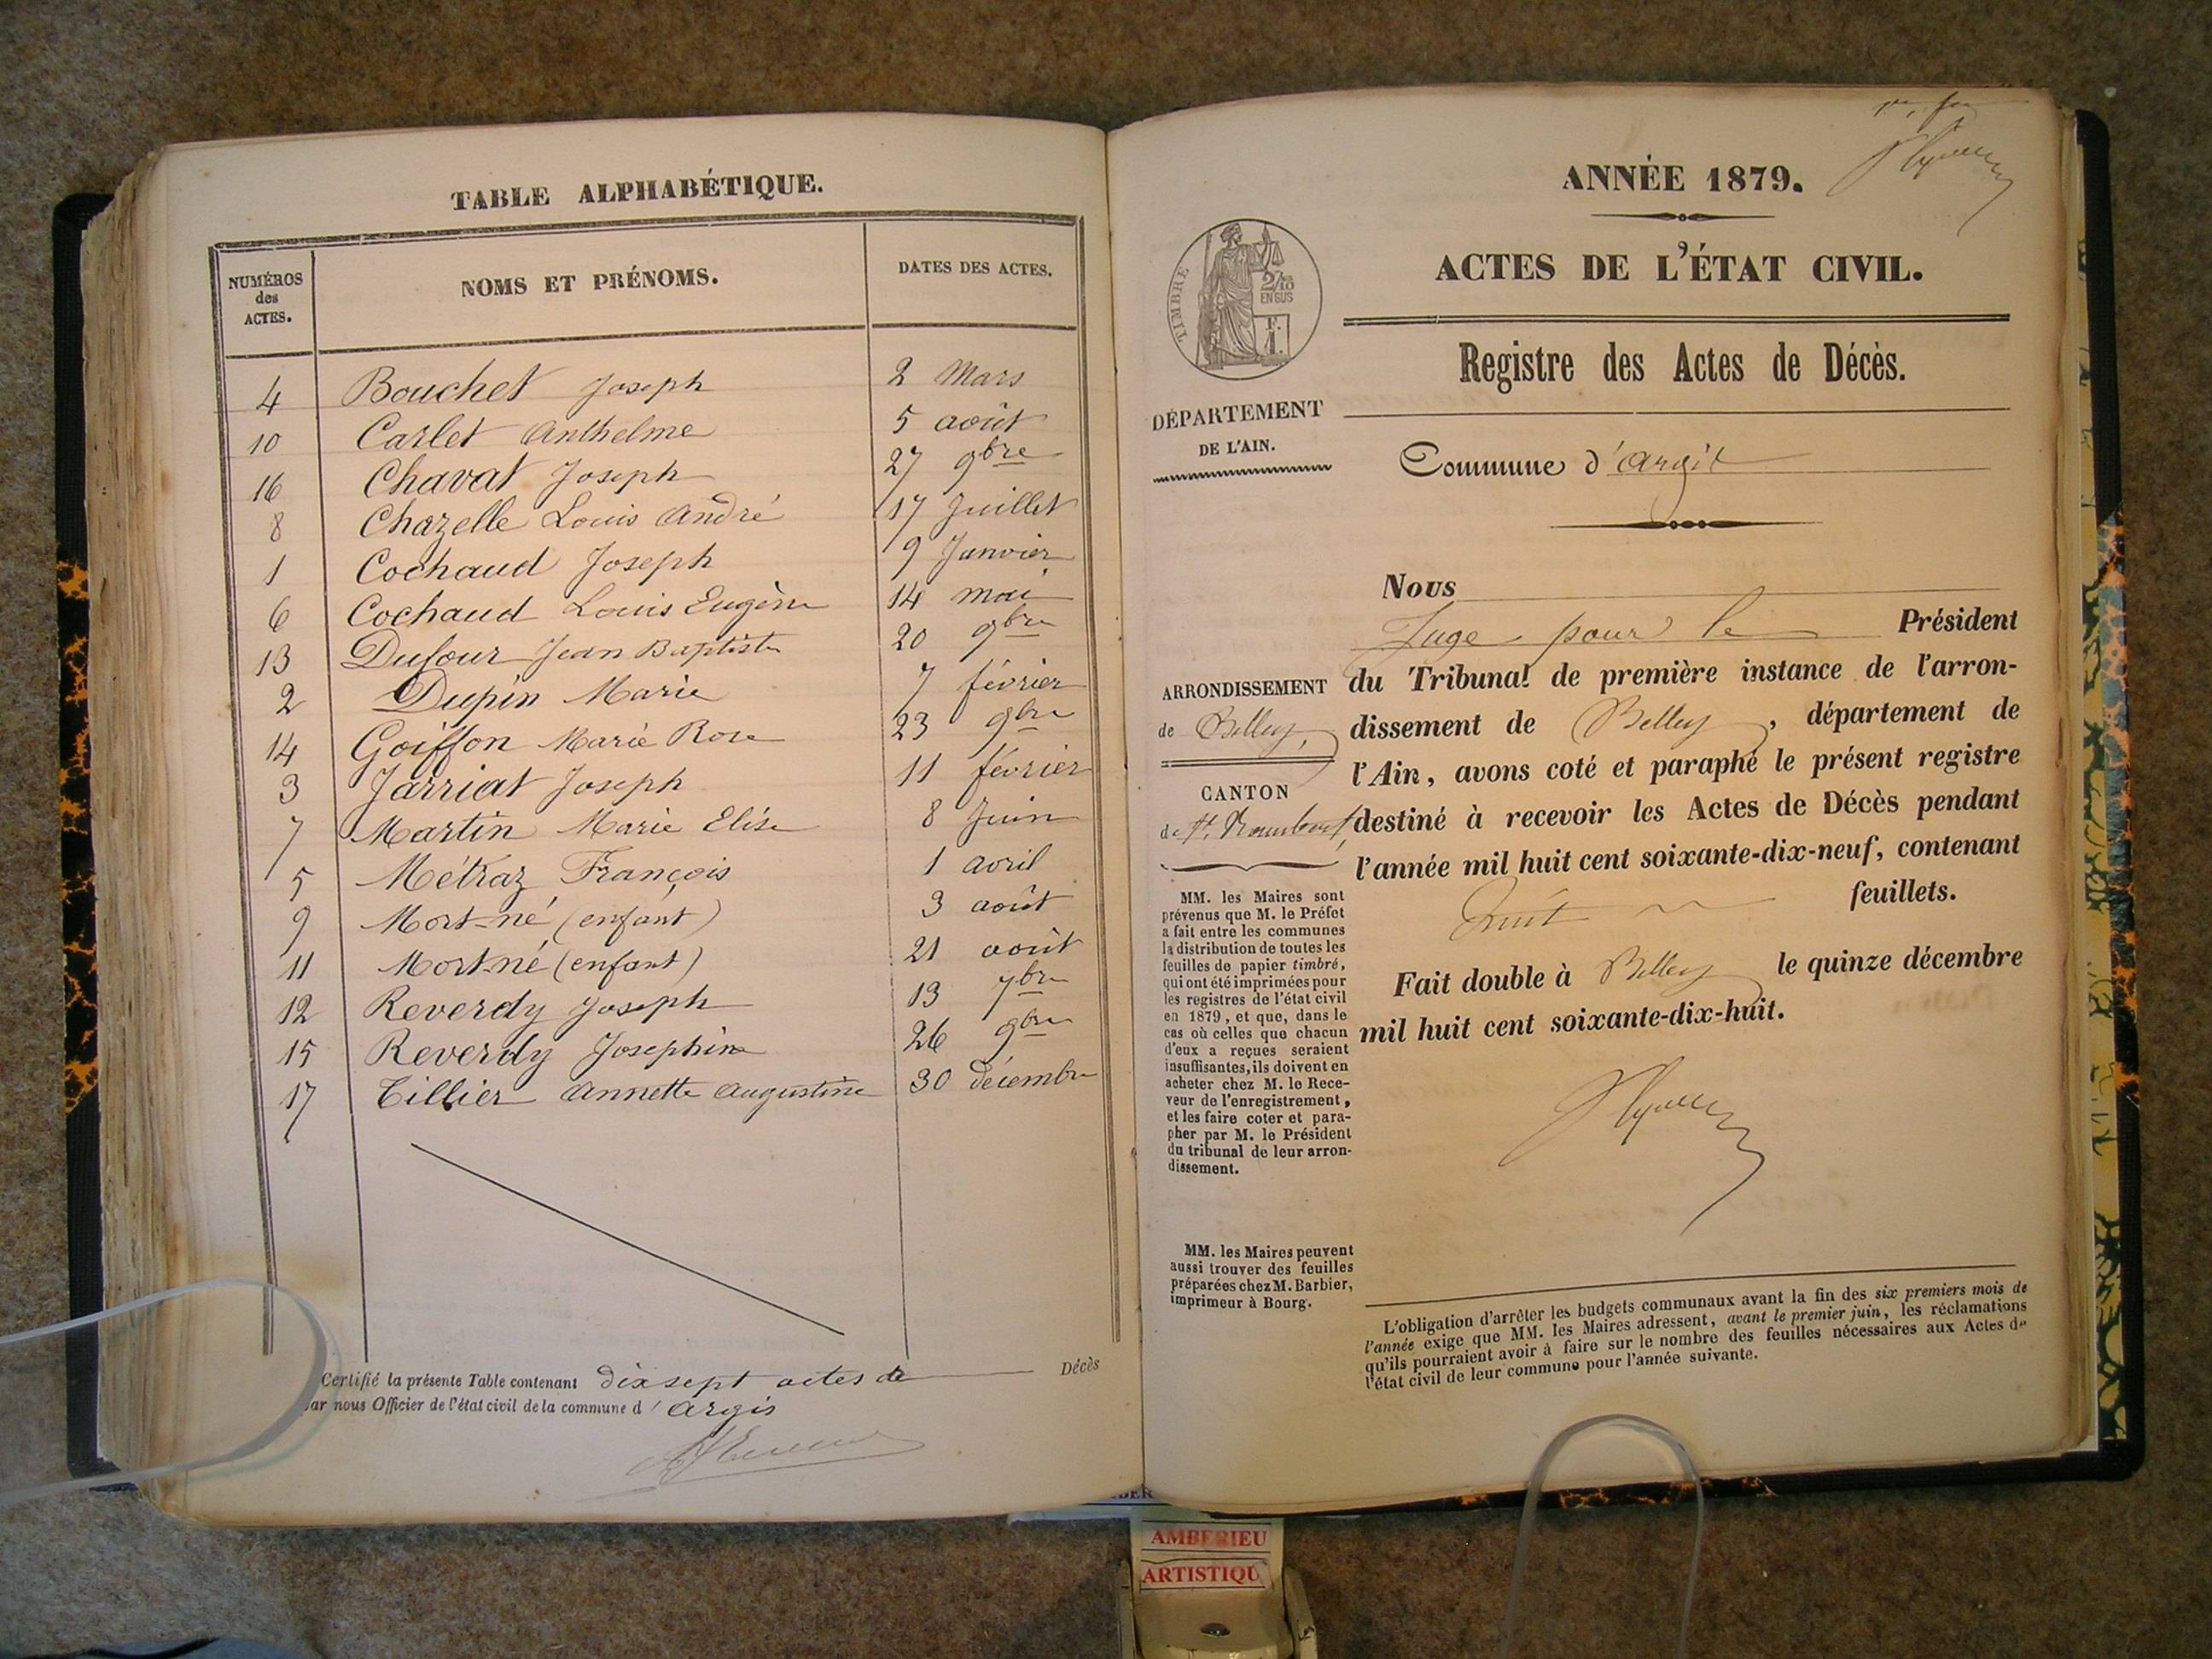 TABLE ALPHABÉTIQUE.
NUMÉROS des ACTES. NOMS ET PRÉNOMS. DATES DES ACTES.
4 Bouchet Joseph 2 Mars
10 Carlet Anthelme 5 août
16 Chavat Joseph 27 9bre
8 Chazelle Louis André 17 Juillet
1 Cochaud Joseph 9 Janvier
6 Cochaud Louis Eugène 14 mai
13 Dufour Jean Baptiste 20 9bre
2 Dupin Marie 7 février
14 Goiffon Marie Rose 23 9bre
3 Jarriat Joseph 11 février
7 Martin Marie Elise 8 Juin
5 Métraz François 1 avril
9 Mort-né (enfant) 3 août
11 Mort-né (enfant) 21 août
12 Reverdy Joseph 13 7bre
15 Reverdy Josephine 26 9bre
17 Tillier Annette Augustine 30 décembre
Certifié la présente Table contenant dix sept actes de Décès
par nous Officier de l'état civil de la commune d'Argis
ANNÉE 1879.
ACTES DE L'ÉTAT CIVIL.
TIMBRE
2/10
EN SUS
Registre des Actes de Décès.
DÉPARTEMENT
DE L'AIN.
Commune d'Argis
Nous
Juge pour le Président
du Tribunal de première instance de l'arron-
dissement de Belley, département de
l'Ain, avons coté et paraphé le présent registre
destiné à recevoir les Actes de Décès pendant
l'année mil huit cent soixante-dix-neuf, contenant
huit feuillets.
Fait double à Belley le quinze décembre
mil huit cent soixante-dix-huit.
ARRONDISSEMENT
de Belley,
CANTON
de St. Rambert,
MM. les Maires sont
prévenus que M. le Préfet
a fait entre les communes
la distribution de toutes les
feuilles de papier timbré,
qui ont été imprimées pour
les registres de l'état civil
en 1879, et que, dans le
cas où celles que chacun
d'eux a reçues seraient
insuffisantes, ils doivent en
acheter chez M. le Rece-
veur de l'enregistrement,
et les faire coter et para-
pher par M. le Président
du tribunal de leur arron-
dissement.
MM. les Maires peuvent
aussi trouver des feuilles
préparées chez M. Barbier,
imprimeur à Bourg.
L'obligation d'arrêter les budgets communaux avant la fin des six premiers mois de
l'année exige que MM. les Maires adressent, avant le premier juin, les réclamations
qu'ils pourraient avoir à faire sur le nombre des feuilles nécessaires aux Actes de
l'état civil de leur commune pour l'année suivante.
AMBERIEU
ARTISTIQU